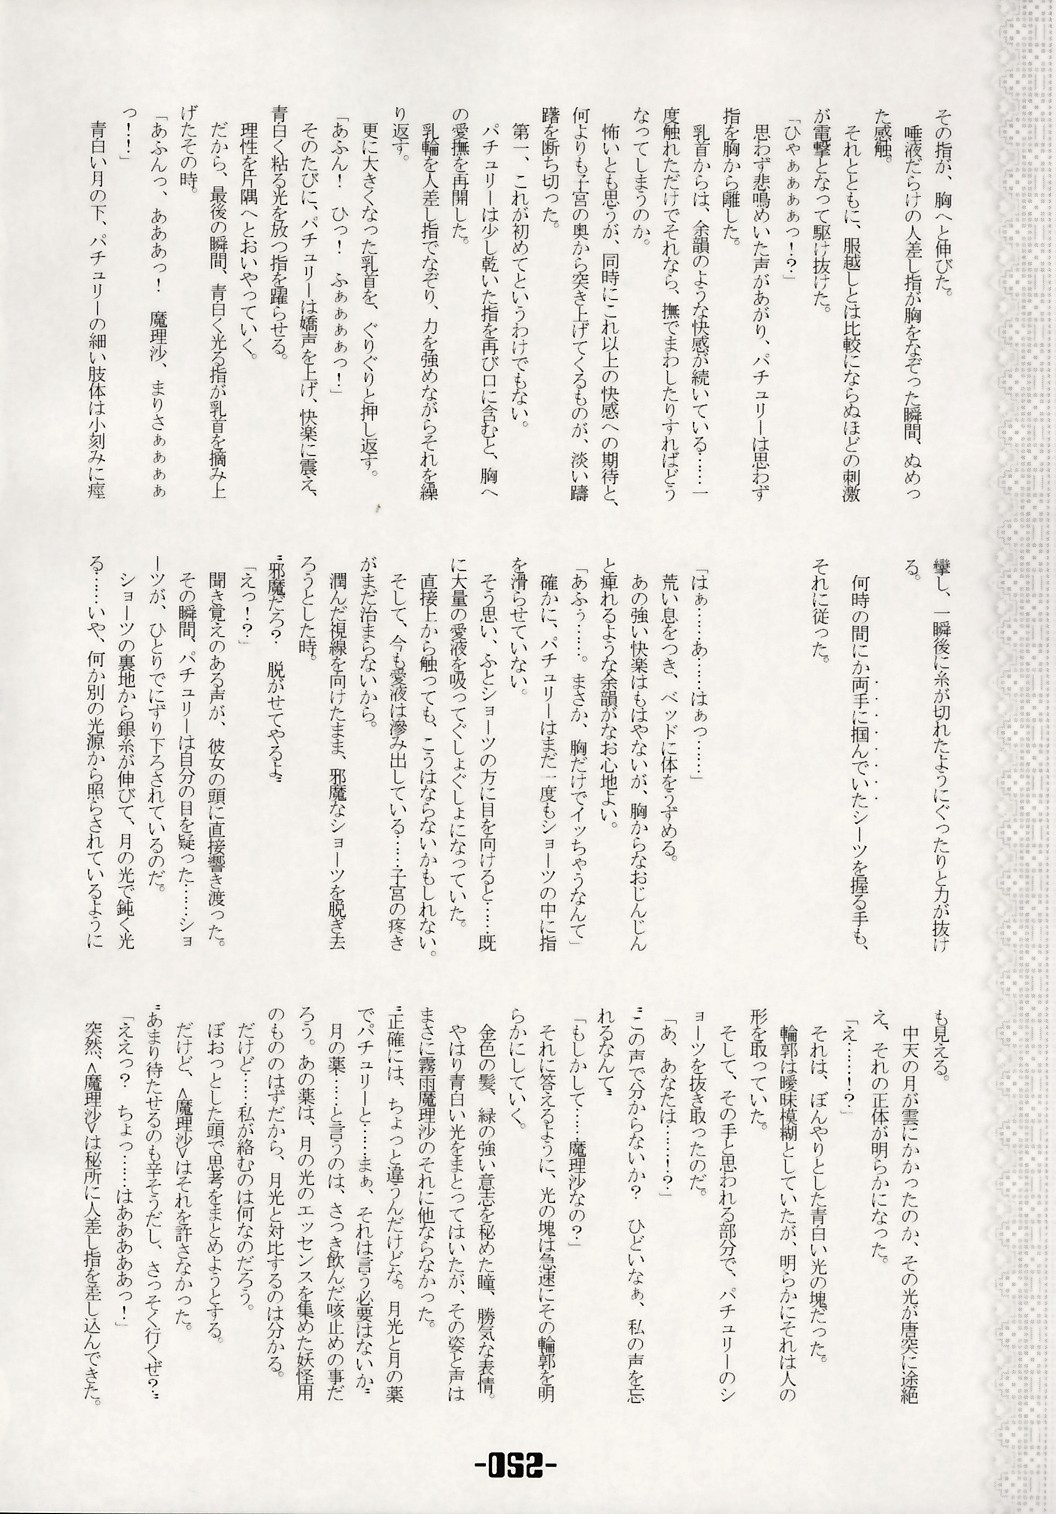 その指が、胸へと伸びた。
唾液だらけの人差し指が胸をなぞった瞬間、ぬめっ
た感触。
それとともに、服越しとは比較にならぬほどの刺激
が電撃となって駆け抜けた。
「ひゃぁぁぁぁっ！？」
思わず悲鳴めいた声があがり、パチュリーは思わず
指を胸から離した。
乳首からは、余韻のような快感が続いている……一
度触れただけでそれなら、撫でまわしたりすればどう
なってしまうのか。
怖いとも思うが、同時にこれ以上の快感への期待と、
何よりも子宮の奥から突き上げてくるものが、淡い躊
躇を断ち切った。
第一、これが初めてというわけでもない。
パチュリーは少し乾いた指を再び口に含むと、胸へ
の愛撫を再開した。
乳輪を人差し指でなぞり、力を強めながらそれを繰
り返す。
更に大きくなった乳首を、ぐりぐりと押し返す。
「あふん！　ひっ！　ふぁぁぁぁっ！」
そのたびに、パチュリーは嬌声を上げ、快楽に震え、
青白く粘る光を放つ指を躍らせる。
理性を片隅へとおいやっていく。
だから、最後の瞬間、青白く光る指が乳首を摘み上
げたその時。
「あふんっ、あああっ！　魔理沙、まりさぁぁぁぁ
っ！！」
青白い月の下、パチュリーの細い肢体は小刻みに痙
攣し、一瞬後に糸が切れたようにぐったりと力が抜け
る。
何時の間にか両手に掴んでいたシーツを握る手も、
それに従った。
「はぁ……あ……はぁっ……」
荒い息をつき、ベッドに体をうずめる。
あの強い快楽はもはやないが、胸からなおじんじん
と痺れるような余韻がなお心地よい。
「あふぅ……。まさか、胸だけでイッちゃうなんて」
確かに、パチュリーはまだ一度もショーツの中に指
を滑らせていない。
そう思い、ふとショーツの方に目を向けると……既
に大量の愛液を吸ってぐしょぐしょになっていた。
直接上から触っても、こうはならないかもしれない。
そして、今も愛液は滲み出している……子宮の疼き
がまだ治まらないから。
潤んだ視線を向けたまま、邪魔なショーツを脱ぎ去
ろうとした時。
〝邪魔だろ？　脱がせてやるよ〟
「えっ！？」
聞き覚えのある声が、彼女の頭に直接響き渡った。
その瞬間、パチュリーは自分の目を疑った……ショ
ーツが、ひとりでにずり下ろされているのだ。
ショーツの裏地から銀糸が伸びて、月の光で鈍く光
る……いや、何か別の光源から照らされているように
も見える。
中天の月が雲にかかったのか、その光が唐突に途絶
え、それの正体が明らかになった。
「え……！？」
それは、ぼんやりとした青白い光の塊だった。
輪郭は曖昧模糊としていたが、明らかにそれは人の
形を取っていた。
そして、その手と思われる部分で、パチュリーのシ
ョーツを抜き取ったのだ。
「あ、あなたは……！？」
〝この声で分からないか？　ひどいなぁ、私の声を忘
れるなんて〟
「もしかして……魔理沙なの？」
それに答えるように、光の塊は急速にその輪郭を明
らかにしていく。
金色の髪、緑の強い意志を秘めた瞳、勝気な表情。
やはり青白い光をまとってはいたが、その姿と声は
まさに霧雨魔理沙のそれに他ならなかった。
〝正確には、ちょっと違うんだけどな。月光と月の薬
でパチュリーと……まぁ、それは言う必要はないか〟
月の薬……と言うのは、さっき飲んだ咳止めの事だ
ろう。あの薬は、月の光のエッセンスを集めた妖怪用
のもののはずだから、月光と対比するのは分かる。
だけど……私が絡むのは何なのだろう。
ぼおっとした頭で思考をまとめようとする。
だけど、＜魔理沙＞はそれを許さなかった。
〝あまり待たせるのも辛そうだし、さっそく行くぜ？〟
「ええっ？　ちょっ……はああああっ！」
突然、＜魔理沙＞は秘所に人差し指を差し込んできた。
-052-